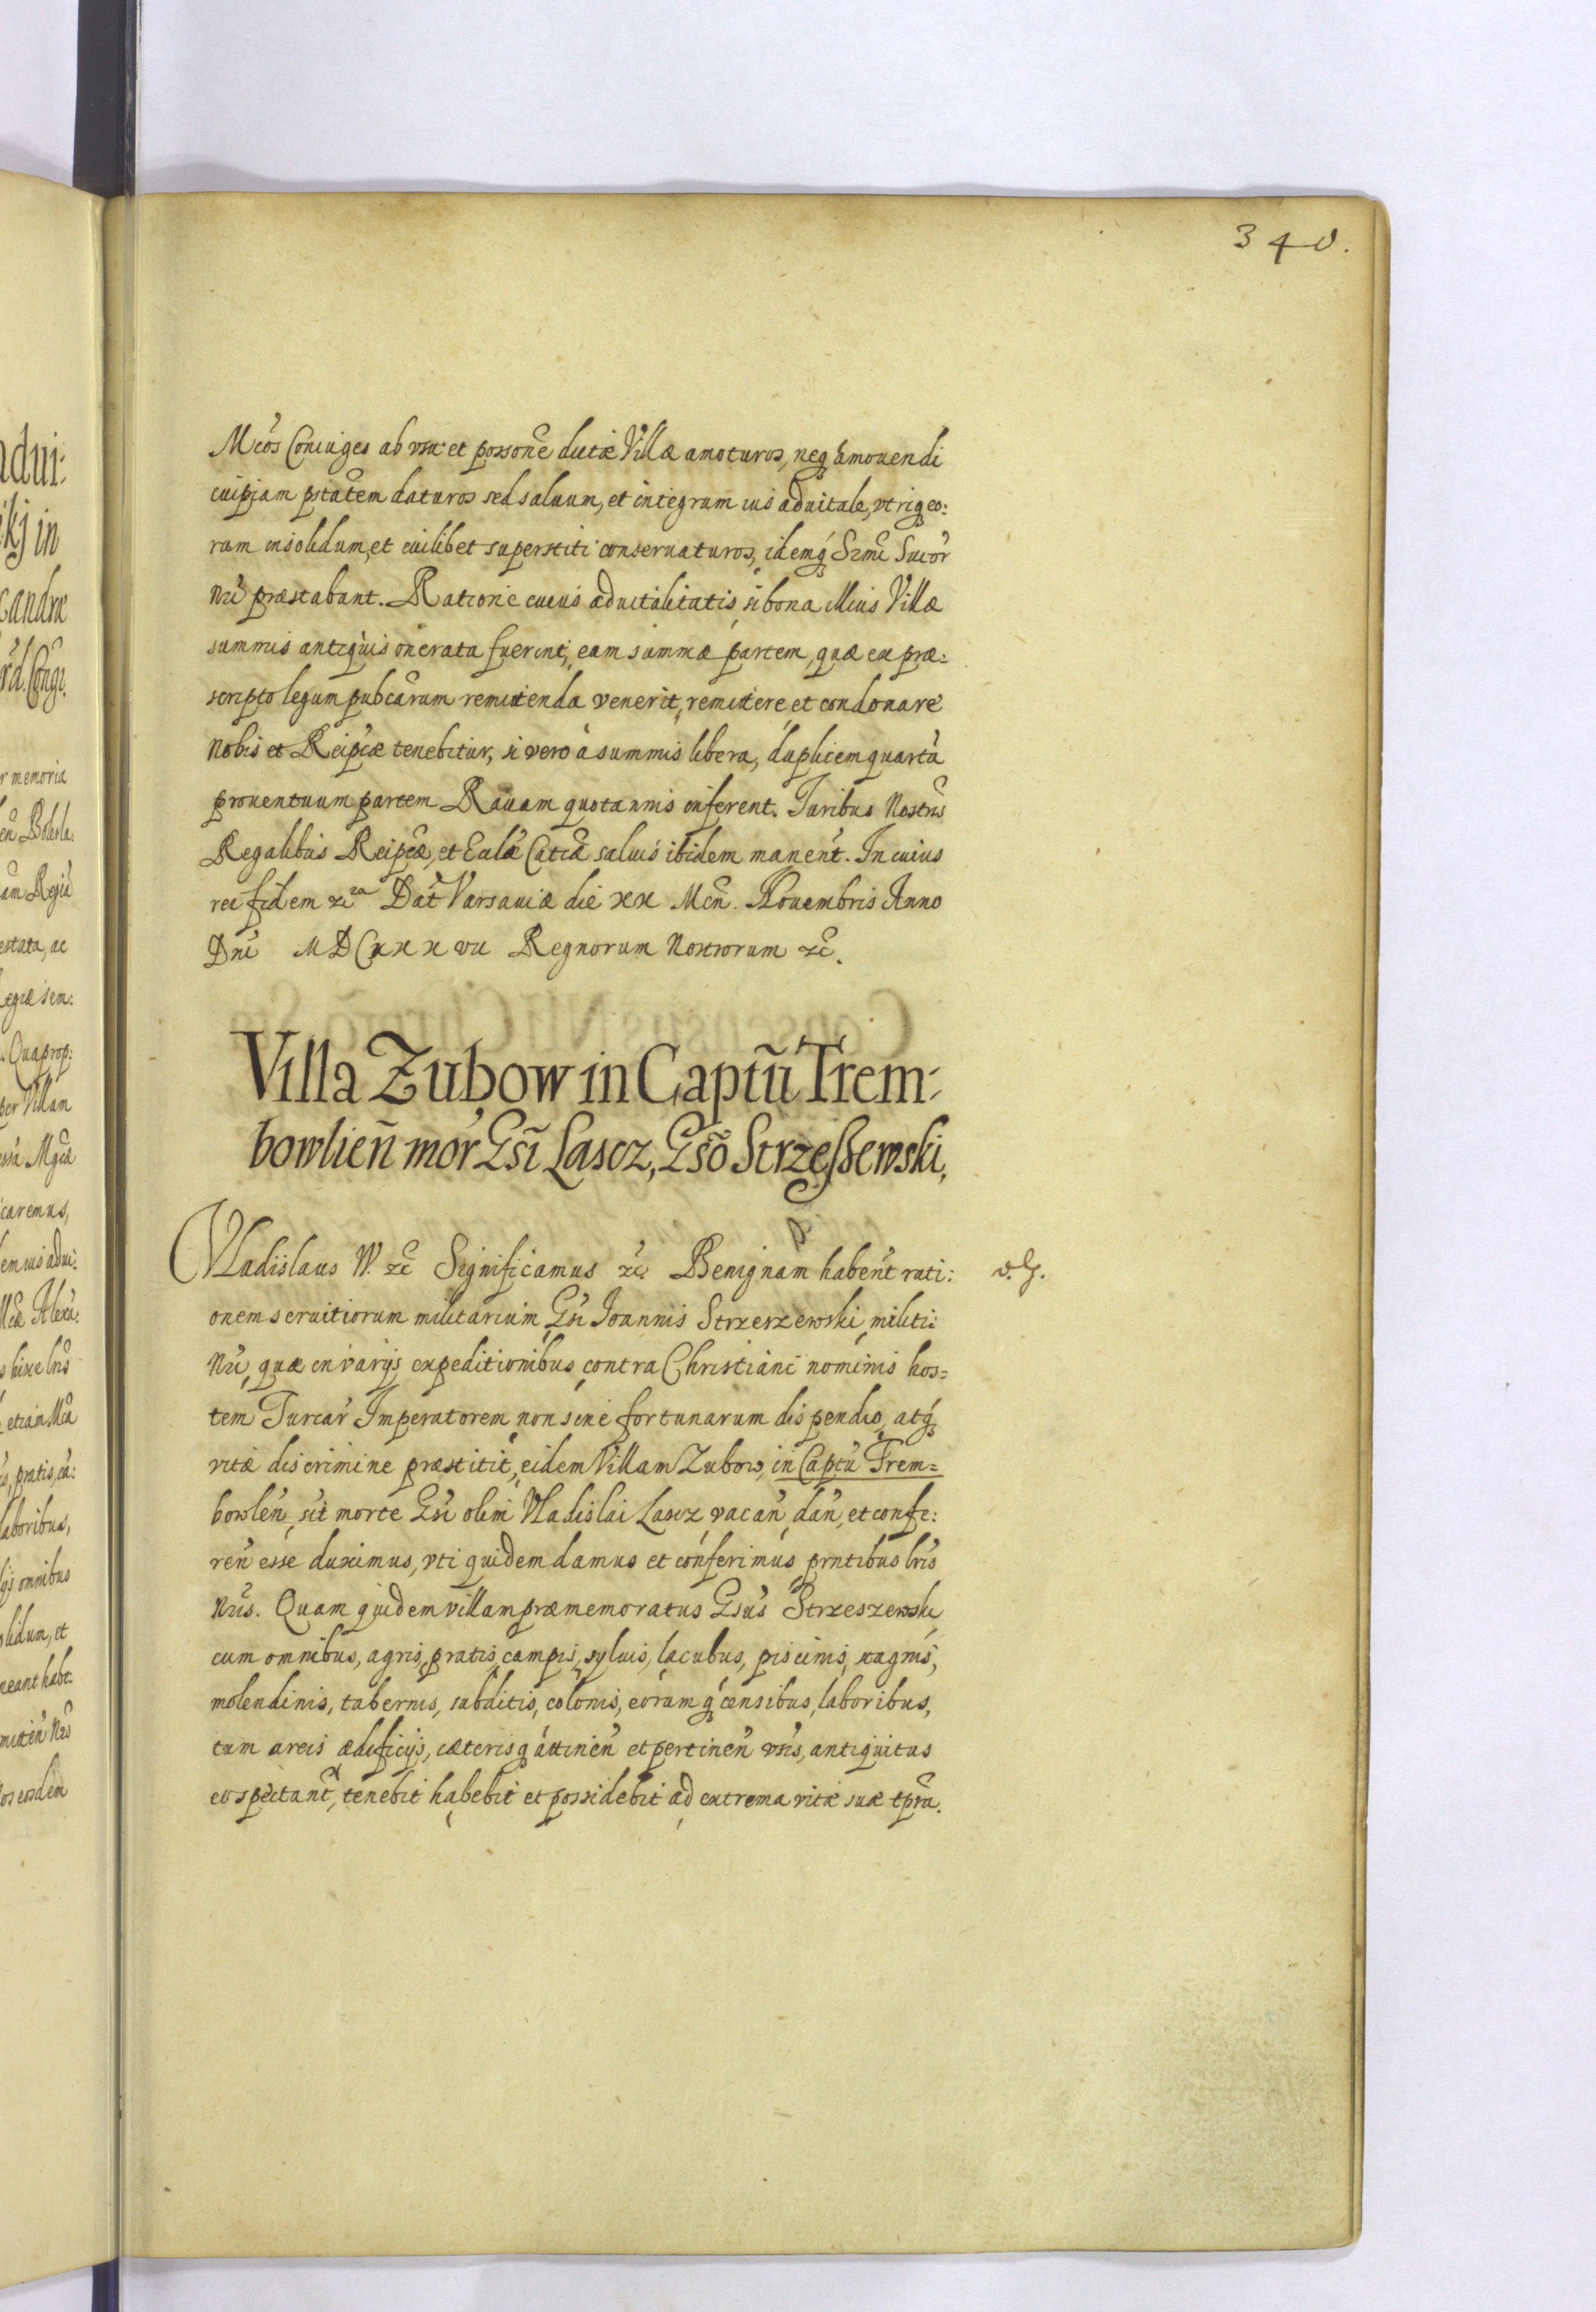 340.
Mcos Coniuges ab vsu et possone dictæ Villæ amoturos, neq amouendi
cuipiam ptatem daturos sed saluum, et integrum ius aduitale, vtriq eo:
rum insolidum, et cuilibet superstiti conseruaturos, idemq Srmi Sucor
Nri præstabunt. Ratione cuius aduitalitatis, si bona illius Villæ
summis antiquis onerata fuerint, eam summæ partem, quæ ex præ:
scripto legum pubcarum remittenda venerit, remittere et condonare
Nobis et Reipcæ tenebitur, si vero à summis libera, duplicem quartã
prouentuum partem Rauam quotannis inferent. Iuribus Nostris
Regalibus Reipcæ, et Eccla Catcæ saluis ibidem manent. In cuius
rei fidem &c ra Dat Varsauiæ die xx Men. Nouembris Anno
Dni MDCxxxvii Regnorum Nostrorum &c.
Villa Zubow in Captũ Trem:
bowlieñ mor Gsĩ Lascz, Gsõ Strzeszewski,
Vladislaus IV. &c Significamus &c Benignam habent rati:
v. G.
onem seruitiorum militarium Gsi Ioannis Strzeszewski militis
Nri, quæ in varijs expeditionibus contra Christiani nominis hos=
tem Turcar Imperatorem non sine fortunarum dispendio, atq
vitæ discrimine præstitit, eidem Villam Zubow, in Captu Trem=
bowlen, sit morte Gsi olim Vladislai Lascz, vacan, dan, et confe:
ren esse duximus, vti quidem damus et conferimus prntibus lris
Nris. Quam quidem villam præmemoratus Gsus Strzeszewski
cum omnibus, agris, pratis, campis, syluis, lacubus, piscinis, stagnis,
molendinis, tabernis, subditis, colonis, eorumq censibus, laboribus,
tum areis ædificijs, cæterisq attinen et pertinen vsis, antiquitus
eo spectant, tenebit habebit et possidebit ad extrema vitæ suæ tpra.